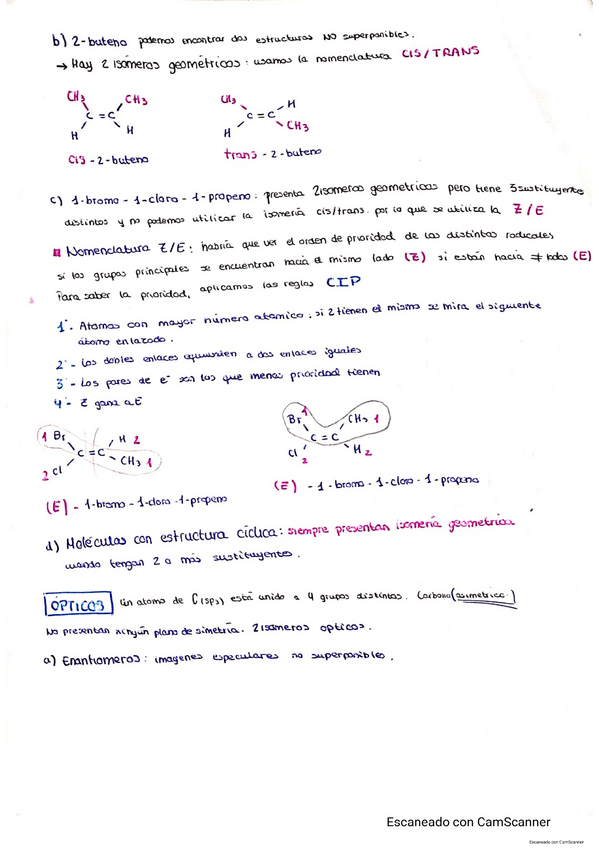 b) 2-buteno podemos encontrar dos estructuras NO superponibles.
→ Hay 2 isómeros geométricos: usamos la nomenclatura CIS/TRANS
CH3 CH3
C=C
H H
cis-2-buteno
CH3 H
C=C
H CH3
trans-2-buteno
c) 1-bromo-1-cloro-1-propeno: presenta 2 isomeros geometricos pero tiene 3 sustituyentes
distintos y no podemos utilizar la isomería cis/trans. por lo que se utiliza la Z/E
Nomenclatura Z/E: habría que ver el orden de prioridad de los distintos radicales
si los grupos principales se encuentran hacia el mismo lado (Z) si están hacia ≠ lados (E)
Para saber la prioridad, aplicamos las reglas CIP
1º- Atomos con mayor número atomico. si 2 tienen el mismo se mira el siguiente
átomo enlazado.
2º- Los dobles enlaces equivalen a dos enlaces iguales
3º- Los pares de e- son los que menos prioridad tienen
4º- Z gana a E
1 Br H 2
C=C
2 Cl CH3 1
(E)-1-bromo-1-cloro-1-propeno
Br 1 CH3 1
C=C
Cl 2 H 2
(E)-1-bromo-1-cloro-1-propeno
d) Moléculas con estructura cíclica: siempre presentan isomería geometrica
cuando tengan 2 o más sustituyentes.
ÓPTICOS Un atomo de C(sp3) está unido a 4 grupos distintos. Carbono (asimetrico)
No presentan ningún plano de simetría. 2 isomeros opticos.
a) Enantiomeros: imagenes especulares no superponibles.
Escaneado con CamScanner
Escaneado con CamScanner